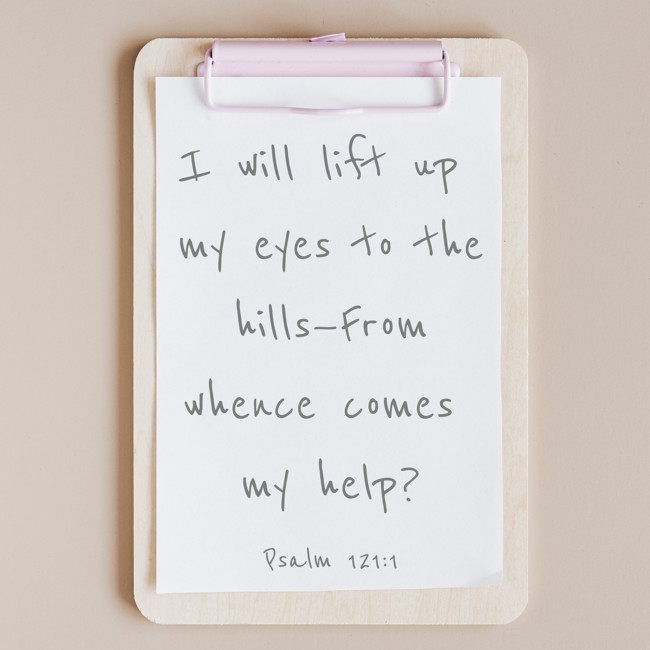 I will lift up
my eyes to the
hills—From
whence comes
my help?
Psalm 121:1